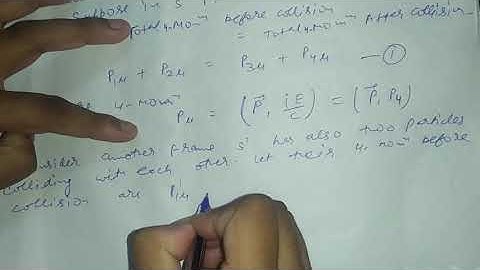 Suppose in S
Total 4-Mom^m before collision
= Total 4-Mom^m After collision
P₁μ + P₂μ = P₃μ + P₄μ —①
4-Mom^m Pμ = (P⃗, iE/c) = (P⃗, P₄)
nsider another frame S' has also two particles
colliding with each other. Let their 4-mom^m before
collision are P₁μ